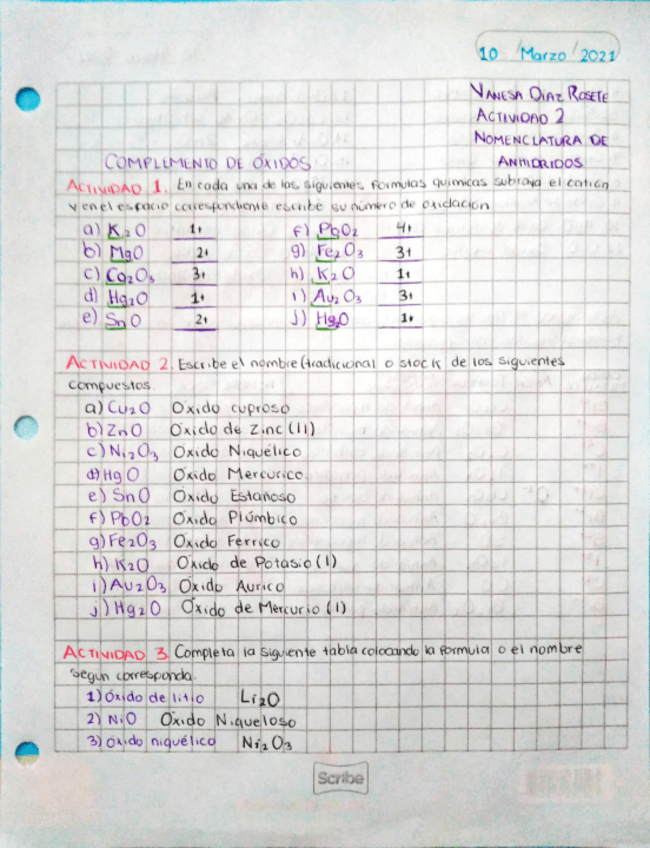 10 / Marzo / 2021
VANESA DIAZ ROSETE
ACTIVIDAD 2
NOMENCLATURA DE
ANHIDRIDOS
COMPLEMENTO DE ÓXIDOS
ACTIVIDAD 1. En cada una de las siguientes formulas químicas subraya el catión
y en el espacio correspondiente escribe su número de oxidación
a) K2O 1+ f) PbO2 4+
b) MgO 2+ g) Fe2O3 3+
c) Co2O3 3+ h) K2O 1+
d) Hg2O 1+ i) Au2O3 3+
e) SnO 2+ J) Hg2O 1+
ACTIVIDAD 2. Escribe el nombre (tradicional o stock de los siguientes
compuestos.
a) Cu2O Óxido cuproso
b) ZnO Óxido de Zinc (II)
c) Ni2O3 Óxido Niquélico
d) HgO Óxido Mercurico
e) SnO Óxido Estañoso
f) PbO2 Óxido Plúmbico
g) Fe2O3 Óxido Ferrico
h) K2O Óxido de Potasio (I)
i) Au2O3 Óxido Aurico
j) Hg2O Óxido de Mercurio (I)
ACTIVIDAD 3. Completa la siguiente tabla colocando la formula o el nombre
segun corresponda.
1) Óxido de litio Li2O
2) NiO Óxido Niqueloso
3) óxido niquélico Ni2O3
Scribe